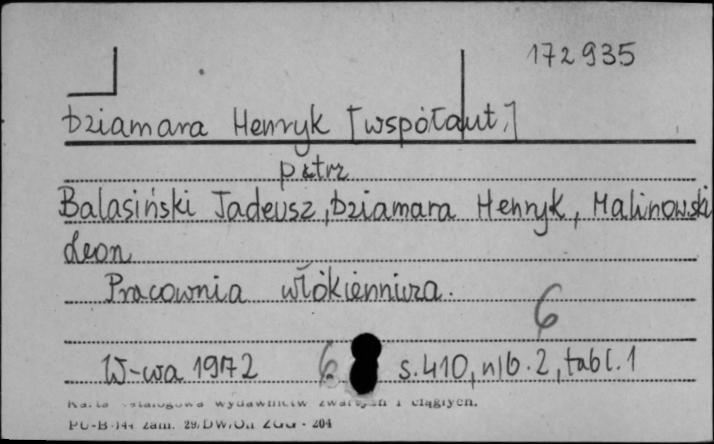 172935
Dziamara Henryk [współaut.]
patrz
Balasiński Tadeusz, Dziamara Henryk, Malinowski
Leon
Pracownia włókiennicza.
6
W-wa 1972 6 s. 410, nlb. 2, tabl. 1
wydawnictw zwartych i ciągłych.
PU-B-144 zam. 204